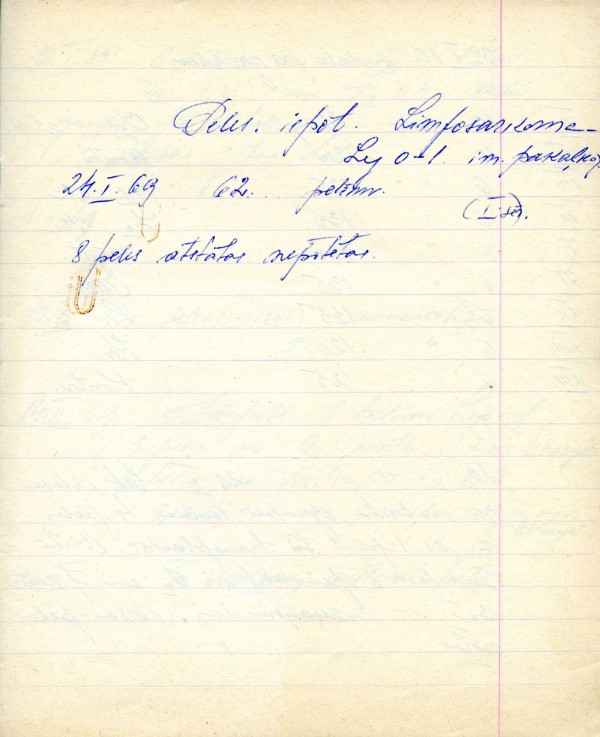 Peles. iepot. Limfosarkoma -
Ly 0-1. im. pakaļkāj.
24.I.69 62. pelēm.
(I. sēr).
8 peles atstātas nepotētas.